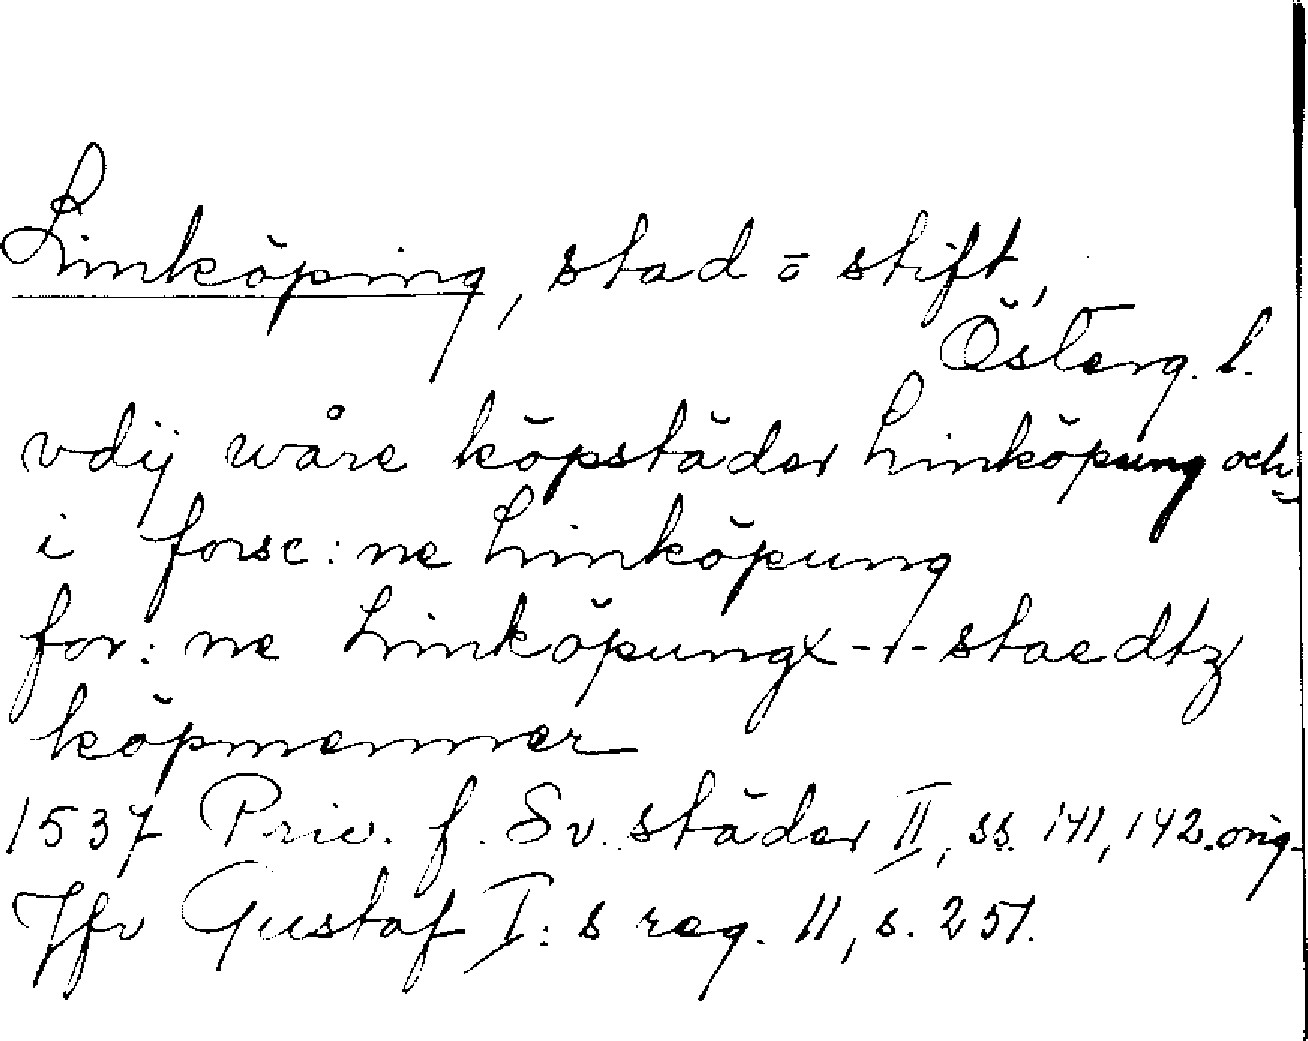 Linköping, stad o stift,
Österg. l.
vdij wåre köpstäder Linköpung och
i forsc:ne Linköpung
for:ne Linköpungx -r- staedtz
köpmenner
1537 Priv. f. Sv. städer II, ss. 141, 142. orig.
Jfr Gustaf I:s reg. 11, s. 251.